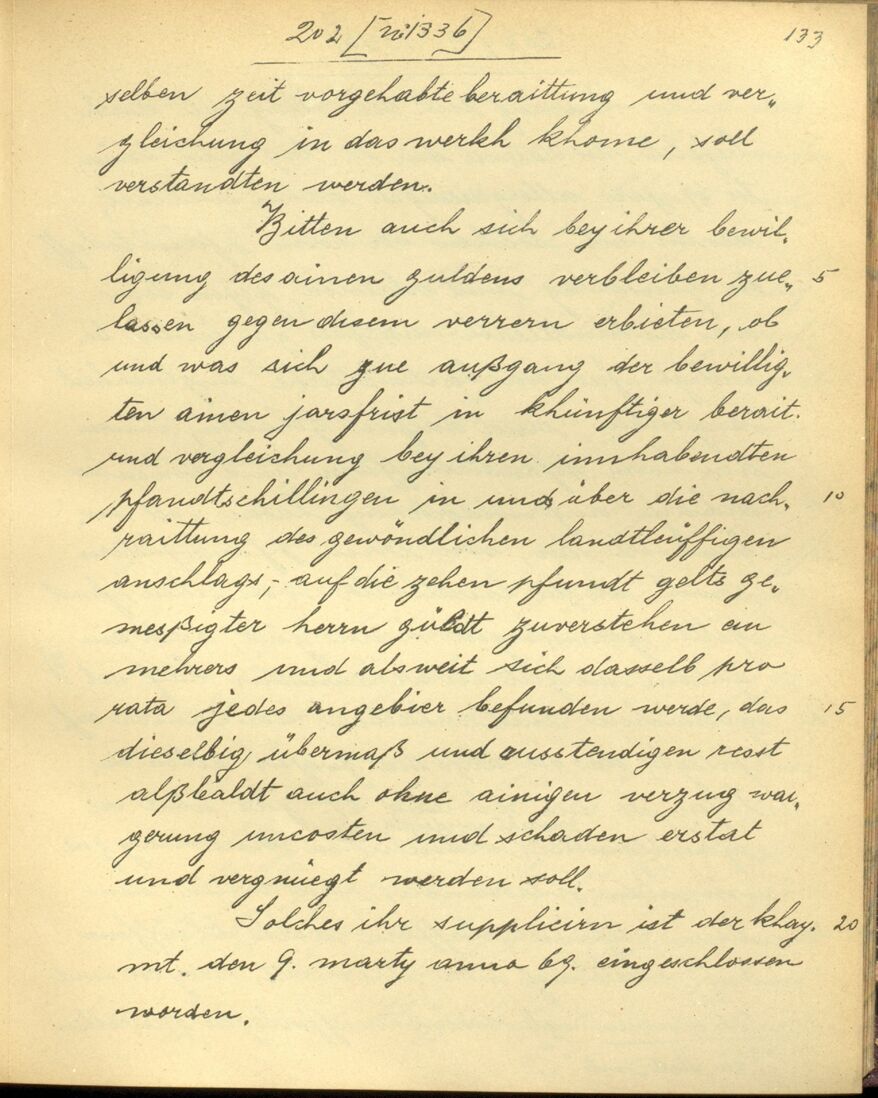 202 [nr 1336]
133
selben zeit vorgehabte beraittung und ver„
gleichung in das werkh khome, soll
verstandten werden.
Bitten auch sich bey ihrer bewil„
ligung des ainen guldens verbleiben zue„ 5
lassen gegen disem verrern erbieten, ob
und was sich zue außgang der bewillig„
ten ainen jarsfrist in khünftiger berait.
und vergleichung bey ihren innhabendten
pfandtschillingen in und über die nach„ 10
raittung des gewöndlichen landtleüffigen
anschlags, auf die zehen pfundt gelts ge„
meßigter herrn güldt zuverstehen ein
mehrers und alsweit sich dasselb pro
rata jedes angebier befunden werde, das 15
dieselbig übermaß und ausstendigen resst
alßbaldt auch ohne ainigen verzug wai„
gerung uncosten und schaden erstat
und vergnüegt werden soll.
Solches ihr supplicirn ist der khay. 20
mt. den 9. marty anno 69. eingeschlossen
worden.